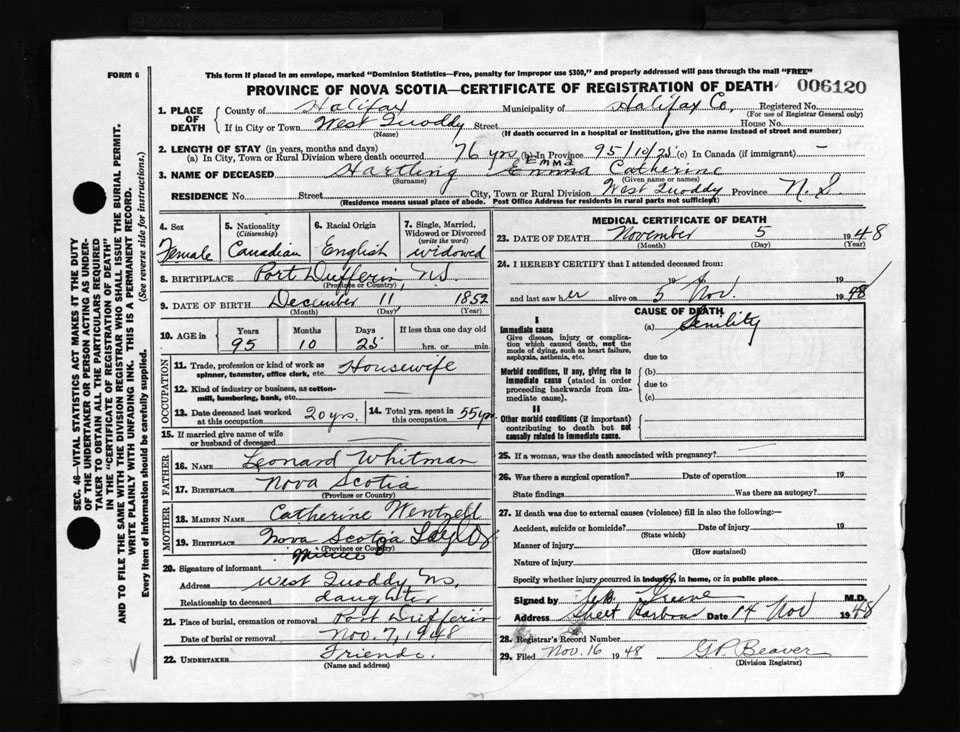 FORM 6
This form if placed in an envelope, marked "Dominion Statistics—Free, penalty for improper use $300," and properly addressed will pass through the mail "FREE"
PROVINCE OF NOVA SCOTIA—CERTIFICATE OF REGISTRATION OF DEATH 006120
1. PLACE OF DEATH
County of Halifax Municipality of Halifax Co. Registered No.
(For use of Registrar General only)
If in City or Town West Quoddy Street House No.
(Name) (If death occurred in a hospital or institution, give the name instead of street and number)
2. LENGTH OF STAY (in years, months and days)
(a) In City, Town or Rural Division where death occurred 76 yrs (b) In Province 95/10/25 (c) In Canada (if immigrant) —
Emma
3. NAME OF DECEASED Hartling Emma Catherine
(Surname) (Given name or names)
RESIDENCE No. Street City, Town or Rural Division West Quoddy Province N.S.
(Residence means usual place of abode. Post Office Address for residents in rural parts not sufficient)
SEC. 46—VITAL STATISTICS ACT MAKES IT THE DUTY
OF THE UNDERTAKER OR PERSON ACTING AS UNDER-
TAKER TO OBTAIN ALL THE PARTICULARS REQUIRED
IN THE "CERTIFICATE OF REGISTRATION OF DEATH"
AND TO FILE THE SAME WITH THE DIVISION REGISTRAR WHO SHALL ISSUE THE BURIAL PERMIT.
WRITE PLAINLY WITH UNFADING INK. THIS IS A PERMANENT RECORD.
Every item of information should be carefully supplied. (See reverse side for instructions.)
4. Sex Female
5. Nationality (Citizenship) Canadian
6. Racial Origin English
7. Single, Married, Widowed or Divorced (write the word) widowed
8. BIRTHPLACE Port Dufferin, N.S.
(Province or Country)
9. DATE OF BIRTH December 11 1852
(Month) (Day) (Year)
10. AGE in Years Months Days If less than one day old
95 10 25 hrs. or min.
OCCUPATION
11. Trade, profession or kind of work as spinner, teamster, office clerk, etc. Housewife
12. Kind of industry or business, as cotton-mill, lumbering, bank, etc. —
13. Date deceased last worked at this occupation 20 yrs. 14. Total yrs. spent in this occupation 55 yrs
15. If married give name of wife or husband of deceased
FATHER
16. NAME Leonard Whitman
17. BIRTHPLACE Nova Scotia
(Province or Country)
MOTHER
18. MAIDEN NAME Catherine Wentzell
19. BIRTHPLACE Nova Scotia
(Province or Country)
20. Signature of informant Minnie
Address West Quoddy NS,
Relationship to deceased daughter
21. Place of burial, cremation or removal Port Dufferin
Date of burial or removal Nov. 7, 1948
22. UNDERTAKER Friends.
(Name and address)
MEDICAL CERTIFICATE OF DEATH
23. DATE OF DEATH November 5 1948
(Month) (Day) (Year)
24. I HEREBY CERTIFY that I attended deceased from:
19 to 19
and last saw her alive on 5 Nov. 1948
CAUSE OF DEATH
I
Immediate cause (a) Senility
Give disease, injury or complica-
tion which caused death, not the
mode of dying, such as heart failure,
asphyxia, asthenia, etc. due to
Morbid conditions, if any, giving rise to (b)
immediate cause (stated in order due to
proceeding backwards from im-
mediate cause). (c)
II
Other morbid conditions (if important)
contributing to death but not
causally related to immediate cause.
25. If a woman, was the death associated with pregnancy?
26. Was there a surgical operation? Date of operation 19
State findings Was there an autopsy?
27. If death was due to external causes (violence) fill in also the following:—
Accident, suicide or homicide? Date of injury 19
(State which)
Manner of injury
(How sustained)
Nature of injury
Specify whether injury occurred in industry, in home, or in public place.
Signed by Greene M.D.
Address Sheet Harbour Date 14 Nov 1948
28. Registrar's Record Number
29. Filed Nov. 16 1948 G.P. Beaver
(Division Registrar)